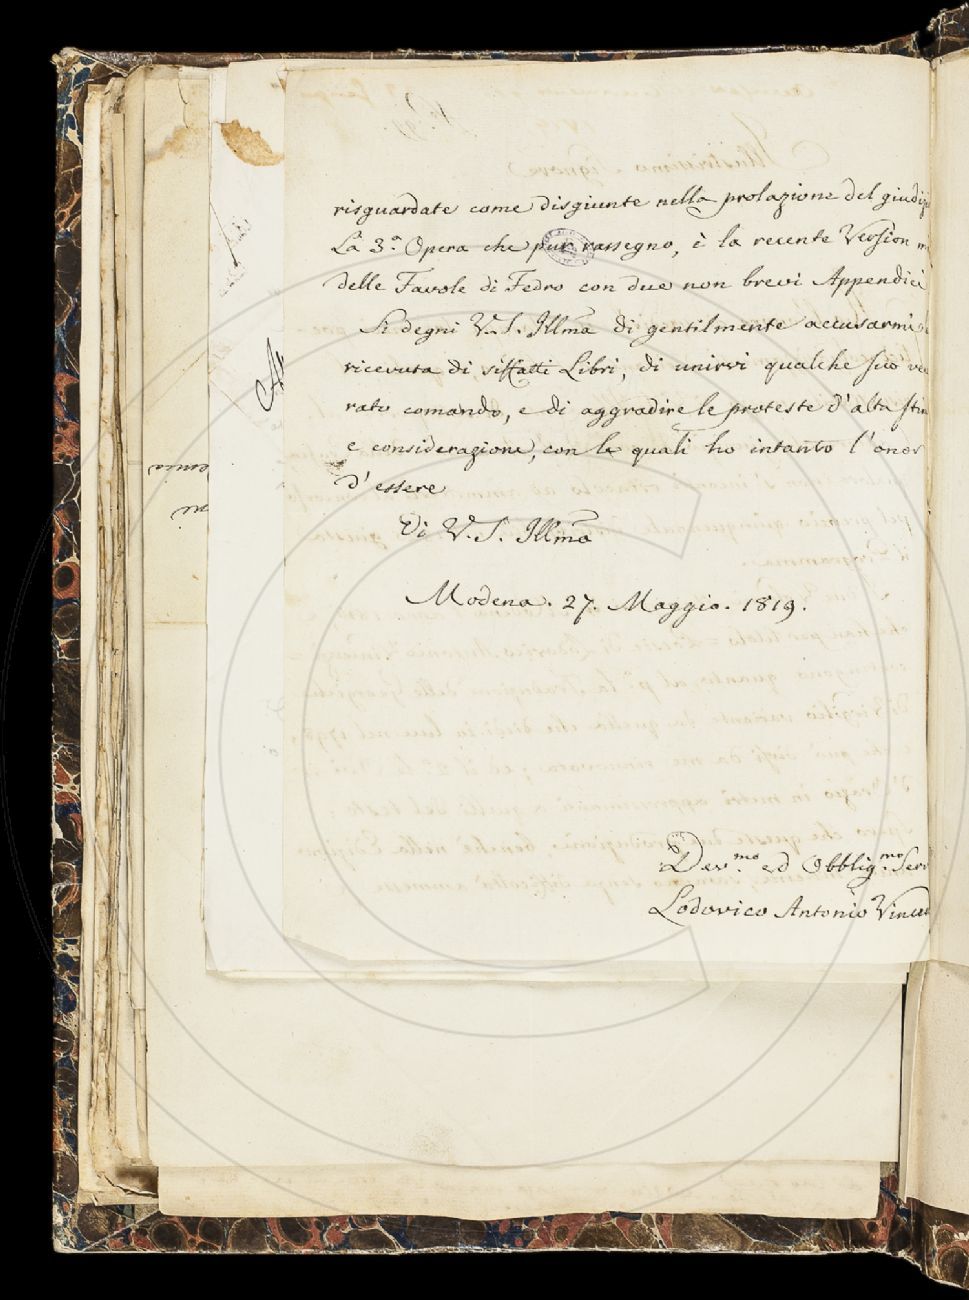 risguardate come disgiunte nella prolazione del giudiz
La 3.a Opera che pur rassegno, è la recente Version m
delle Favole di Fedro con due non brevi Appendici
Si degni V.S. Illma di gentilmente accusarmi l
ricevuta di siffatti Libri, di unirvi qualche suo ve
rato comando, e di aggradire le proteste d'alta stim
e considerazione, con le quali ho intanto l'onor
d'essere
Di V.S. Illma
Modena. 27. Maggio. 1819.
Dev.mo ed Obblig.mo Serv
Lodovico Antonio Vincen